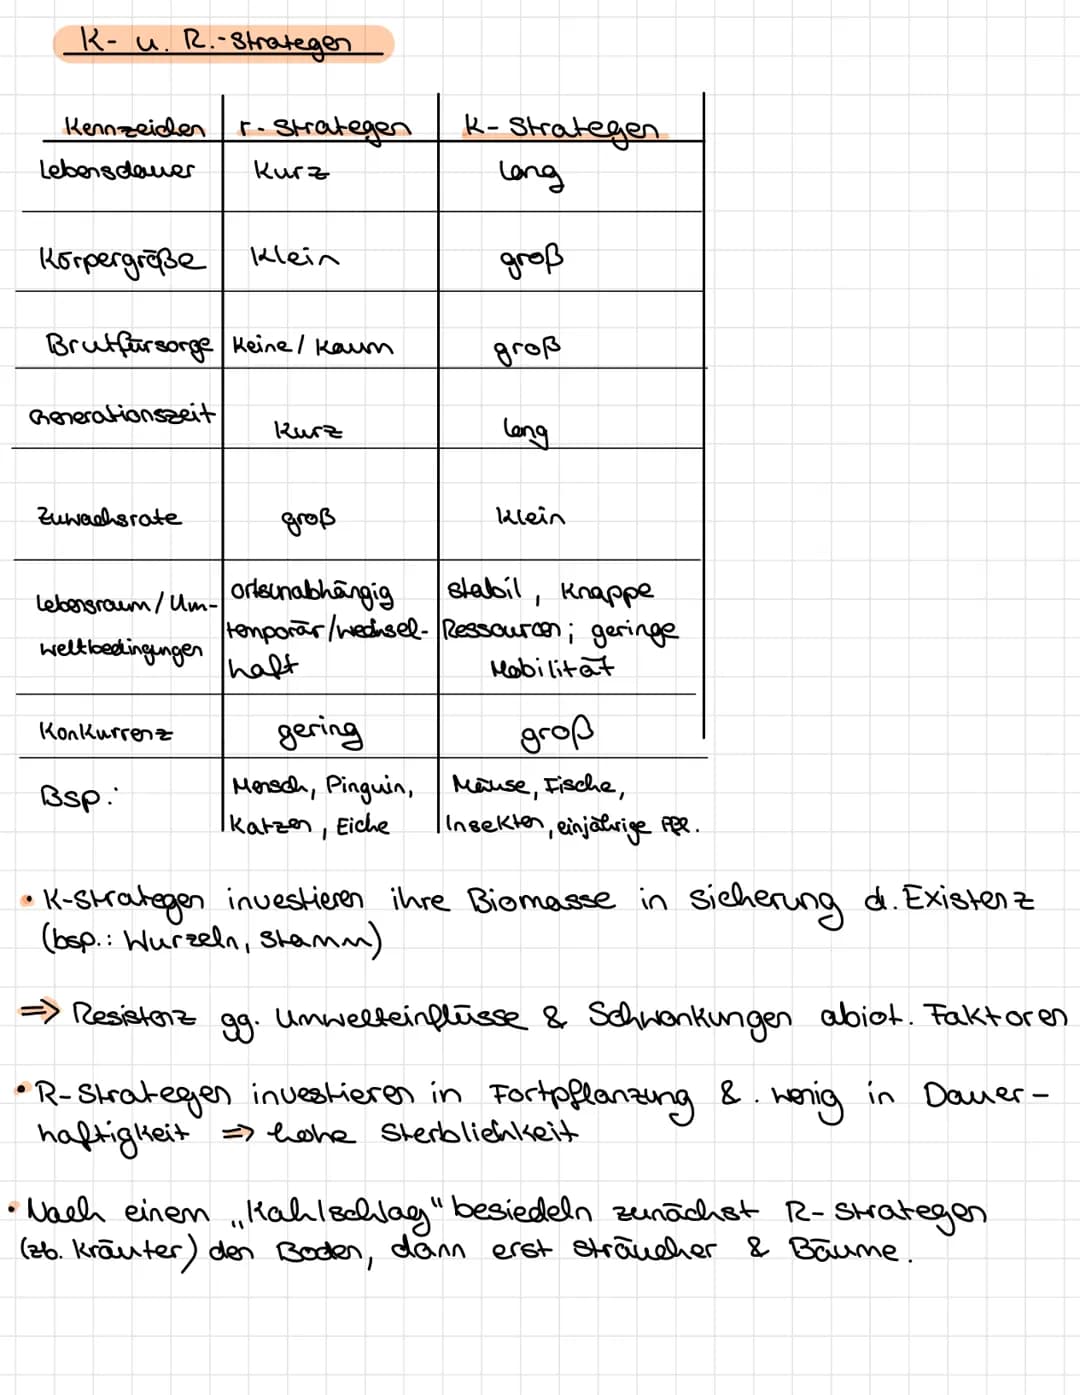 K- u. R.-Strategen
Kennzeichen r-Strategen K-Strategen
Lebensdauer Kurz lang
Körpergröße Klein groß
Brutfürsorge Keine/Kaum groß
Generationszeit Kurz lang
Zuwachsrate groß klein
Lebensraum/Um- ortsunabhängig stabil, Knappe
weltbedingungen temporär/wechsel- Ressourcen; geringe
haft Mobilität
Konkurrenz gering groß
Bsp.: Mensch, Pinguin, Mäuse, Fische,
Katzen, Eiche Insekten, einjährige
• K-Strategen investieren ihre Biomasse in sicherung d. Existenz
(bsp.: Wurzeln, Stamm)
⇒ Resistenz gg. Umwelteinflüsse & Schwankungen abiot. Faktoren
• R-Strategen investieren in Fortpflanzung &. wenig in Dauer-
haftigkeit ⇒ hohe Sterblichkeit
• Nach einem „Kahlschlag" besiedeln zunächst R-Strategen
(zb. Kräuter) den Boden, dann erst sträucher & Bäume.